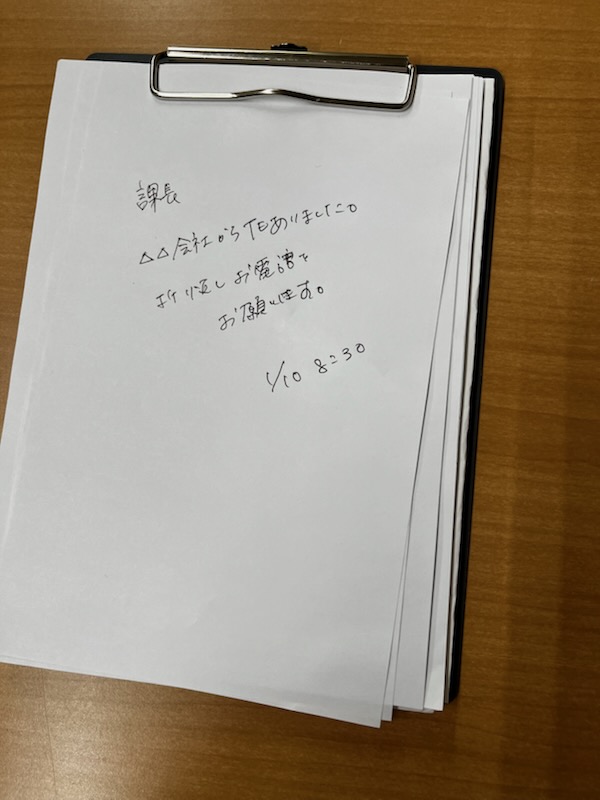 課長
△△会社からTELありました。
折り返しお電話を
お願いします。
1/10 8:30